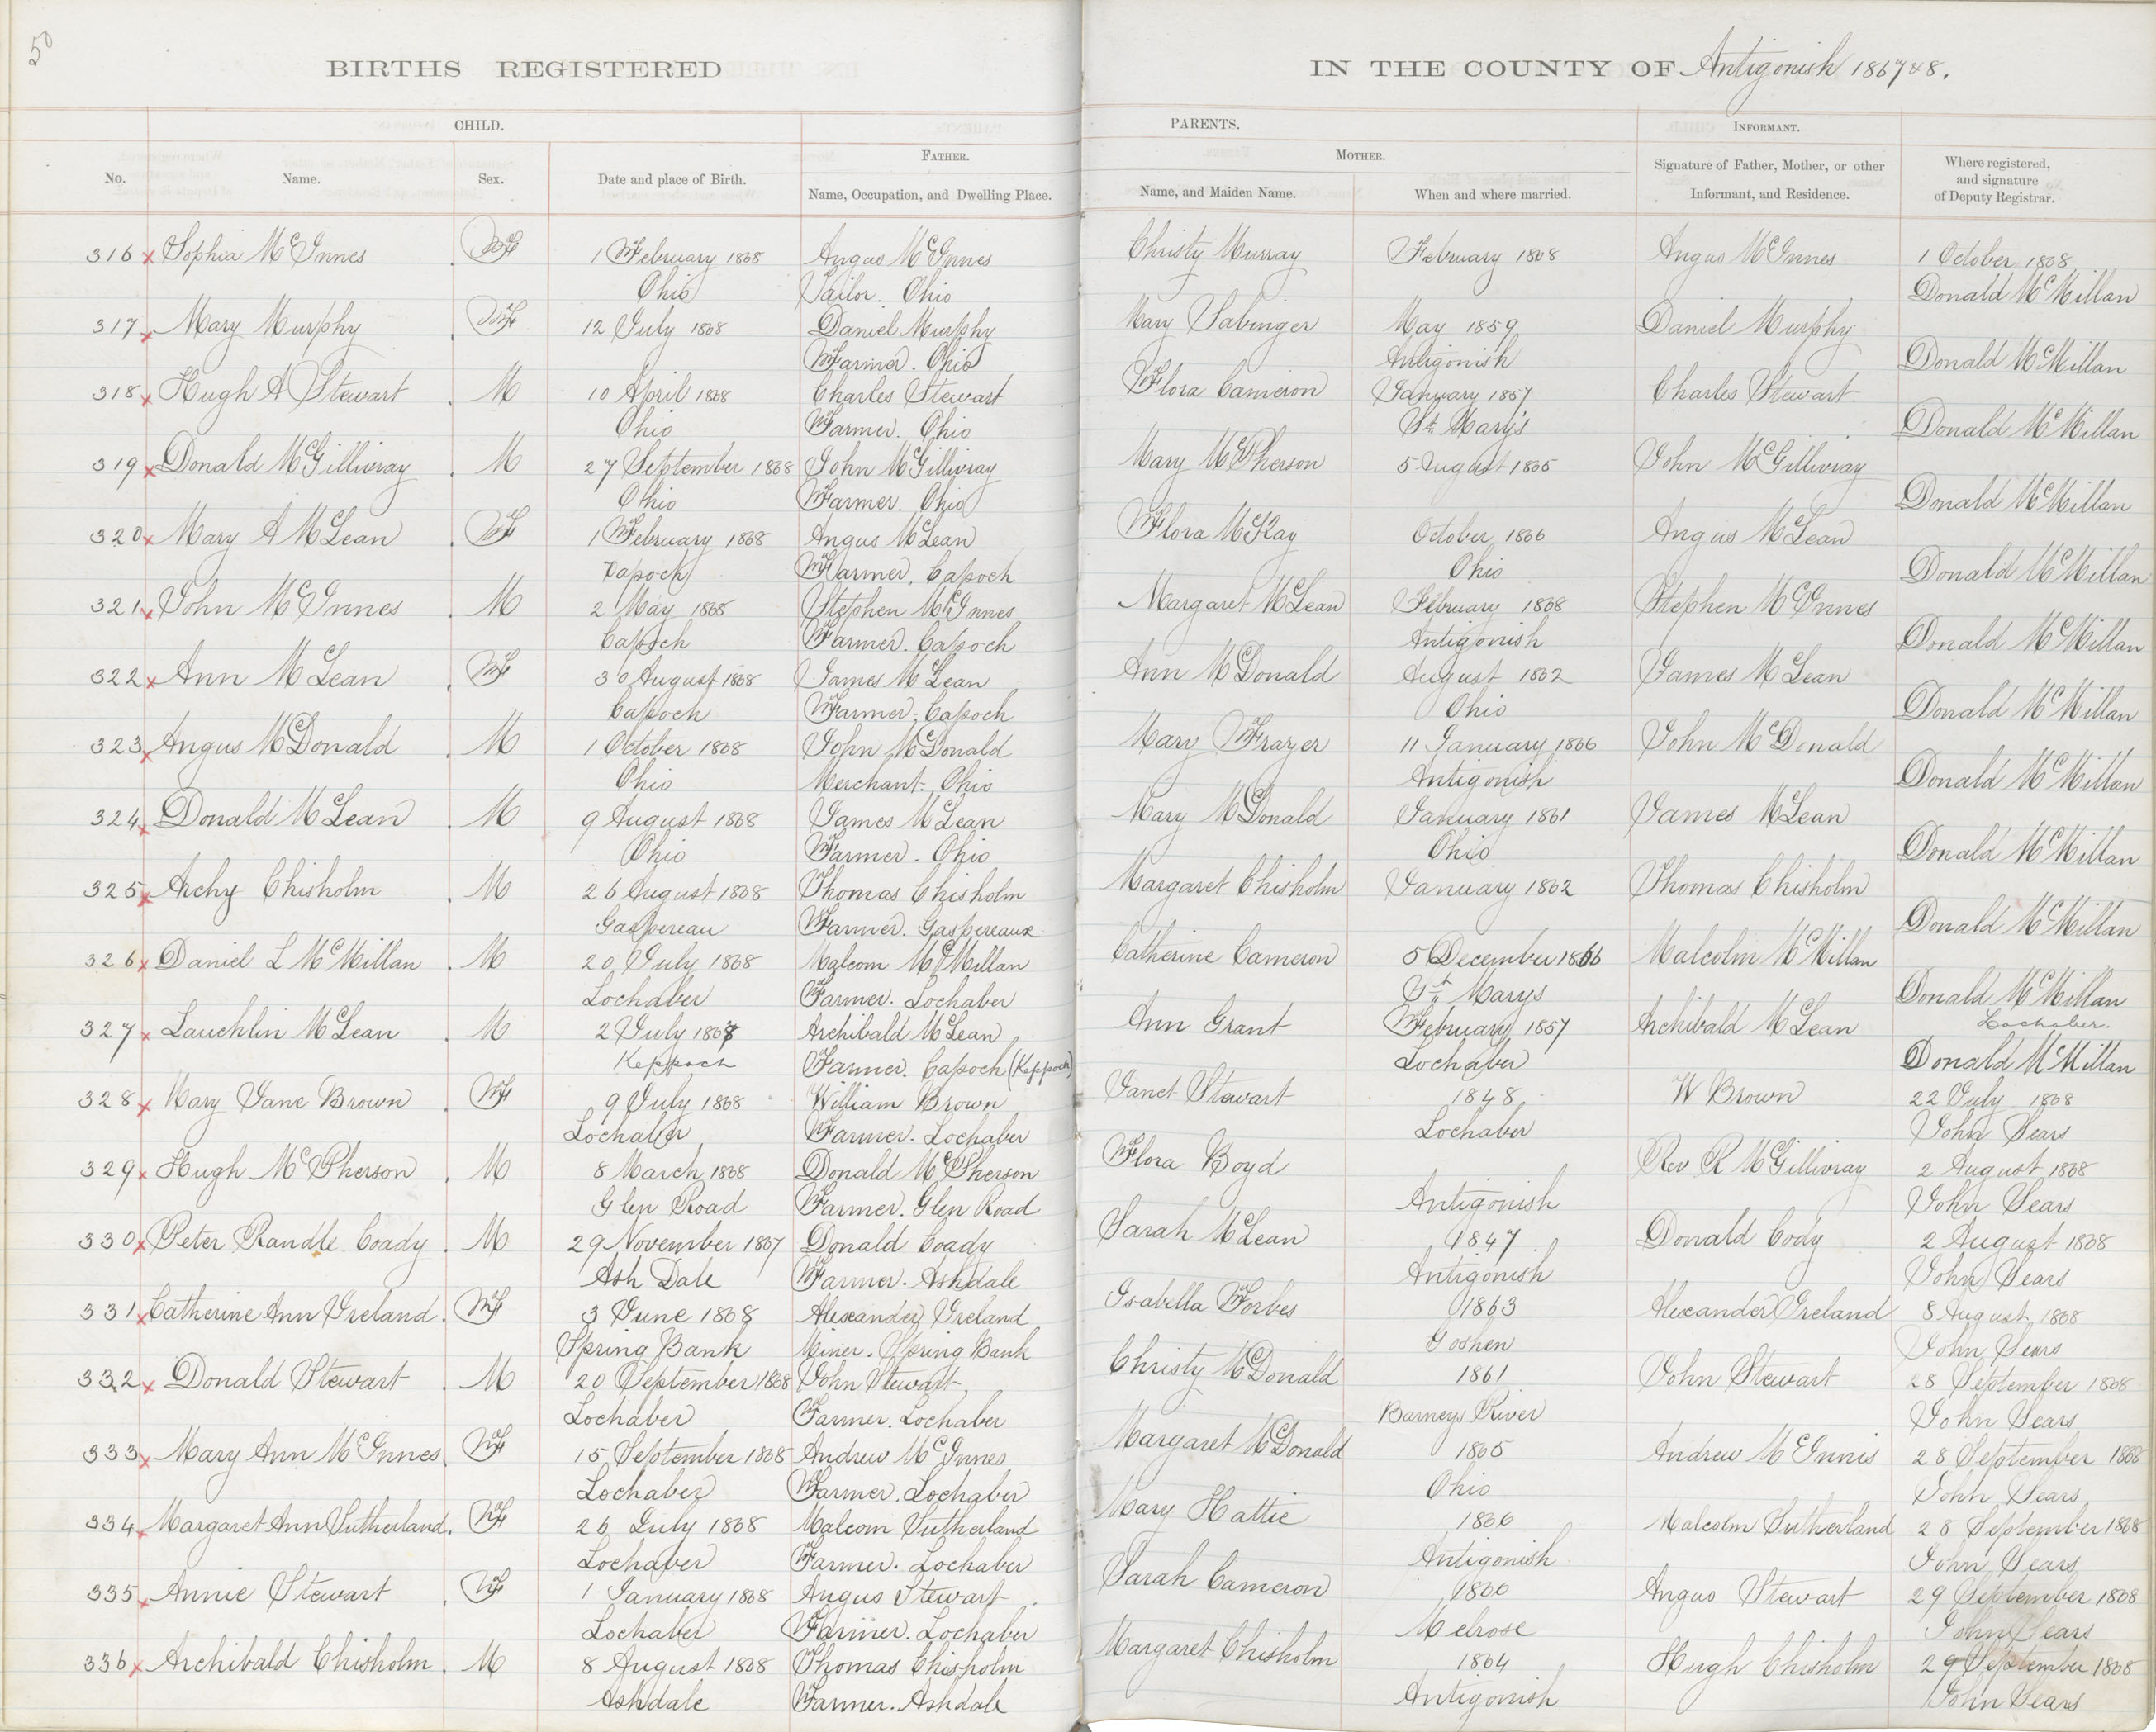 50
BIRTHS REGISTERED IN THE COUNTY OF Antigonish 1867 & 8.
CHILD. PARENTS. INFORMANT.
FATHER. MOTHER.
No. Name. Sex. Date and place of Birth. Name, Occupation, and Dwelling Place. Name, and Maiden Name. When and where married. Signature of Father, Mother, or other Informant, and Residence. Where registered, and signature of Deputy Registrar.
316 x Sophia McInnes F 1 February 1868 Angus McInnes Christy Murray February 1868 Angus McInnes 1 October 1868
Ohio Tailor. Ohio Donald McMillan
317 x Mary Murphy F 12 July 1868 Daniel Murphy Mary Sabinger May 1859 Daniel Murphy
Farmer. Ohio Antigonish Donald McMillan
318 x Hugh A Stewart M 10 April 1868 Charles Stewart Flora Cameron January 1857 Charles Stewart
Ohio Farmer. Ohio St. Mary's Donald McMillan
319 x Donald McGillivray M 27 September 1868 John McGillivray Mary McPherson 5 August 1865 John McGillivray
Ohio Farmer. Ohio Donald McMillan
320 x Mary A McLean F 1 February 1868 Angus McLean Flora McKay October 1866 Angus McLean
Capoch Farmer. Capoch Ohio Donald McMillan
321 x John McInnes M 2 May 1868 Stephen McInnes Margaret McLean February 1868 Stephen McInnes
Capoch Farmer. Capoch Antigonish Donald McMillan
322 x Ann McLean F 30 August 1868 James McLean Ann McDonald August 1862 James McLean
Capoch Farmer. Capoch Ohio Donald McMillan
323 x Angus McDonald M 1 October 1868 John McDonald Mary Frazer 11 January 1866 John McDonald
Ohio Merchant. Ohio Antigonish Donald McMillan
324 x Donald McLean M 9 August 1868 James McLean Mary McDonald January 1861 James McLean
Ohio Farmer. Ohio Ohio Donald McMillan
325 x Archy Chisholm M 26 August 1868 Thomas Chisholm Margaret Chisholm January 1862 Thomas Chisholm
Gaspereau Farmer. Gaspereaux Donald McMillan
326 x Daniel L McMillan M 20 July 1868 Malcom McMillan Catherine Cameron 5 December 1866 Malcolm McMillan
Lochaber Farmer. Lochaber St. Marys Donald McMillan
327 x Lauchlin McLean M 2 July 1868 Archibald McLean Ann Grant February 1857 Archibald McLean Lochaber.
Keppoch Farmer. Capoch (Keppoch) Lochaber Donald McMillan
328 x Mary Jane Brown F 9 July 1868 William Brown Janet Stewart 1848. W Brown 22 July 1868
Lochaber Farmer. Lochaber Lochaber John Sears
329 x Hugh McPherson M 8 March 1868 Donald McPherson Flora Boyd Rev R McGillivray 2 August 1868
Glen Road Farmer. Glen Road Antigonish John Sears
330 x Peter Randle Coady M 29 November 1867 Donald Coady Sarah McLean 1847 Donald Cody 2 August 1868
Ash Dale Farmer. Ashdale Antigonish John Sears
331 x Catherine Ann Ireland F 3 June 1868 Alexander Ireland Isabella Forbes 1863 Alexander Ireland 8 August 1868
Spring Bank Miner. Spring Bank Goshen John Sears
332 x Donald Stewart M 20 September 1868 John Stewart Christy McDonald 1861 John Stewart 28 September 1868
Lochaber Farmer. Lochaber Barneys River John Sears
333 x Mary Ann McInnes F 15 September 1868 Andrew McInnes Margaret McDonald 1865 Andrew McInnis 28 September 1868
Lochaber Farmer. Lochaber Ohio John Sears
334 x Margaret Ann Sutherland F 26 July 1868 Malcom Sutherland Mary Hattie 1866 Malcolm Sutherland 28 September 1868
Lochaber Farmer. Lochaber Antigonish John Sears
335 x Annie Stewart F 1 January 1868 Angus Stewart Sarah Cameron 1860 Angus Stewart 29 September 1868
Lochaber Farmer. Lochaber Melrose John Sears
336 x Archibald Chisholm M 8 August 1868 Thomas Chisholm Margaret Chisholm 1864 Hugh Chisholm 29 September 1868
Ashdale Farmer. Ashdale Antigonish John Sears